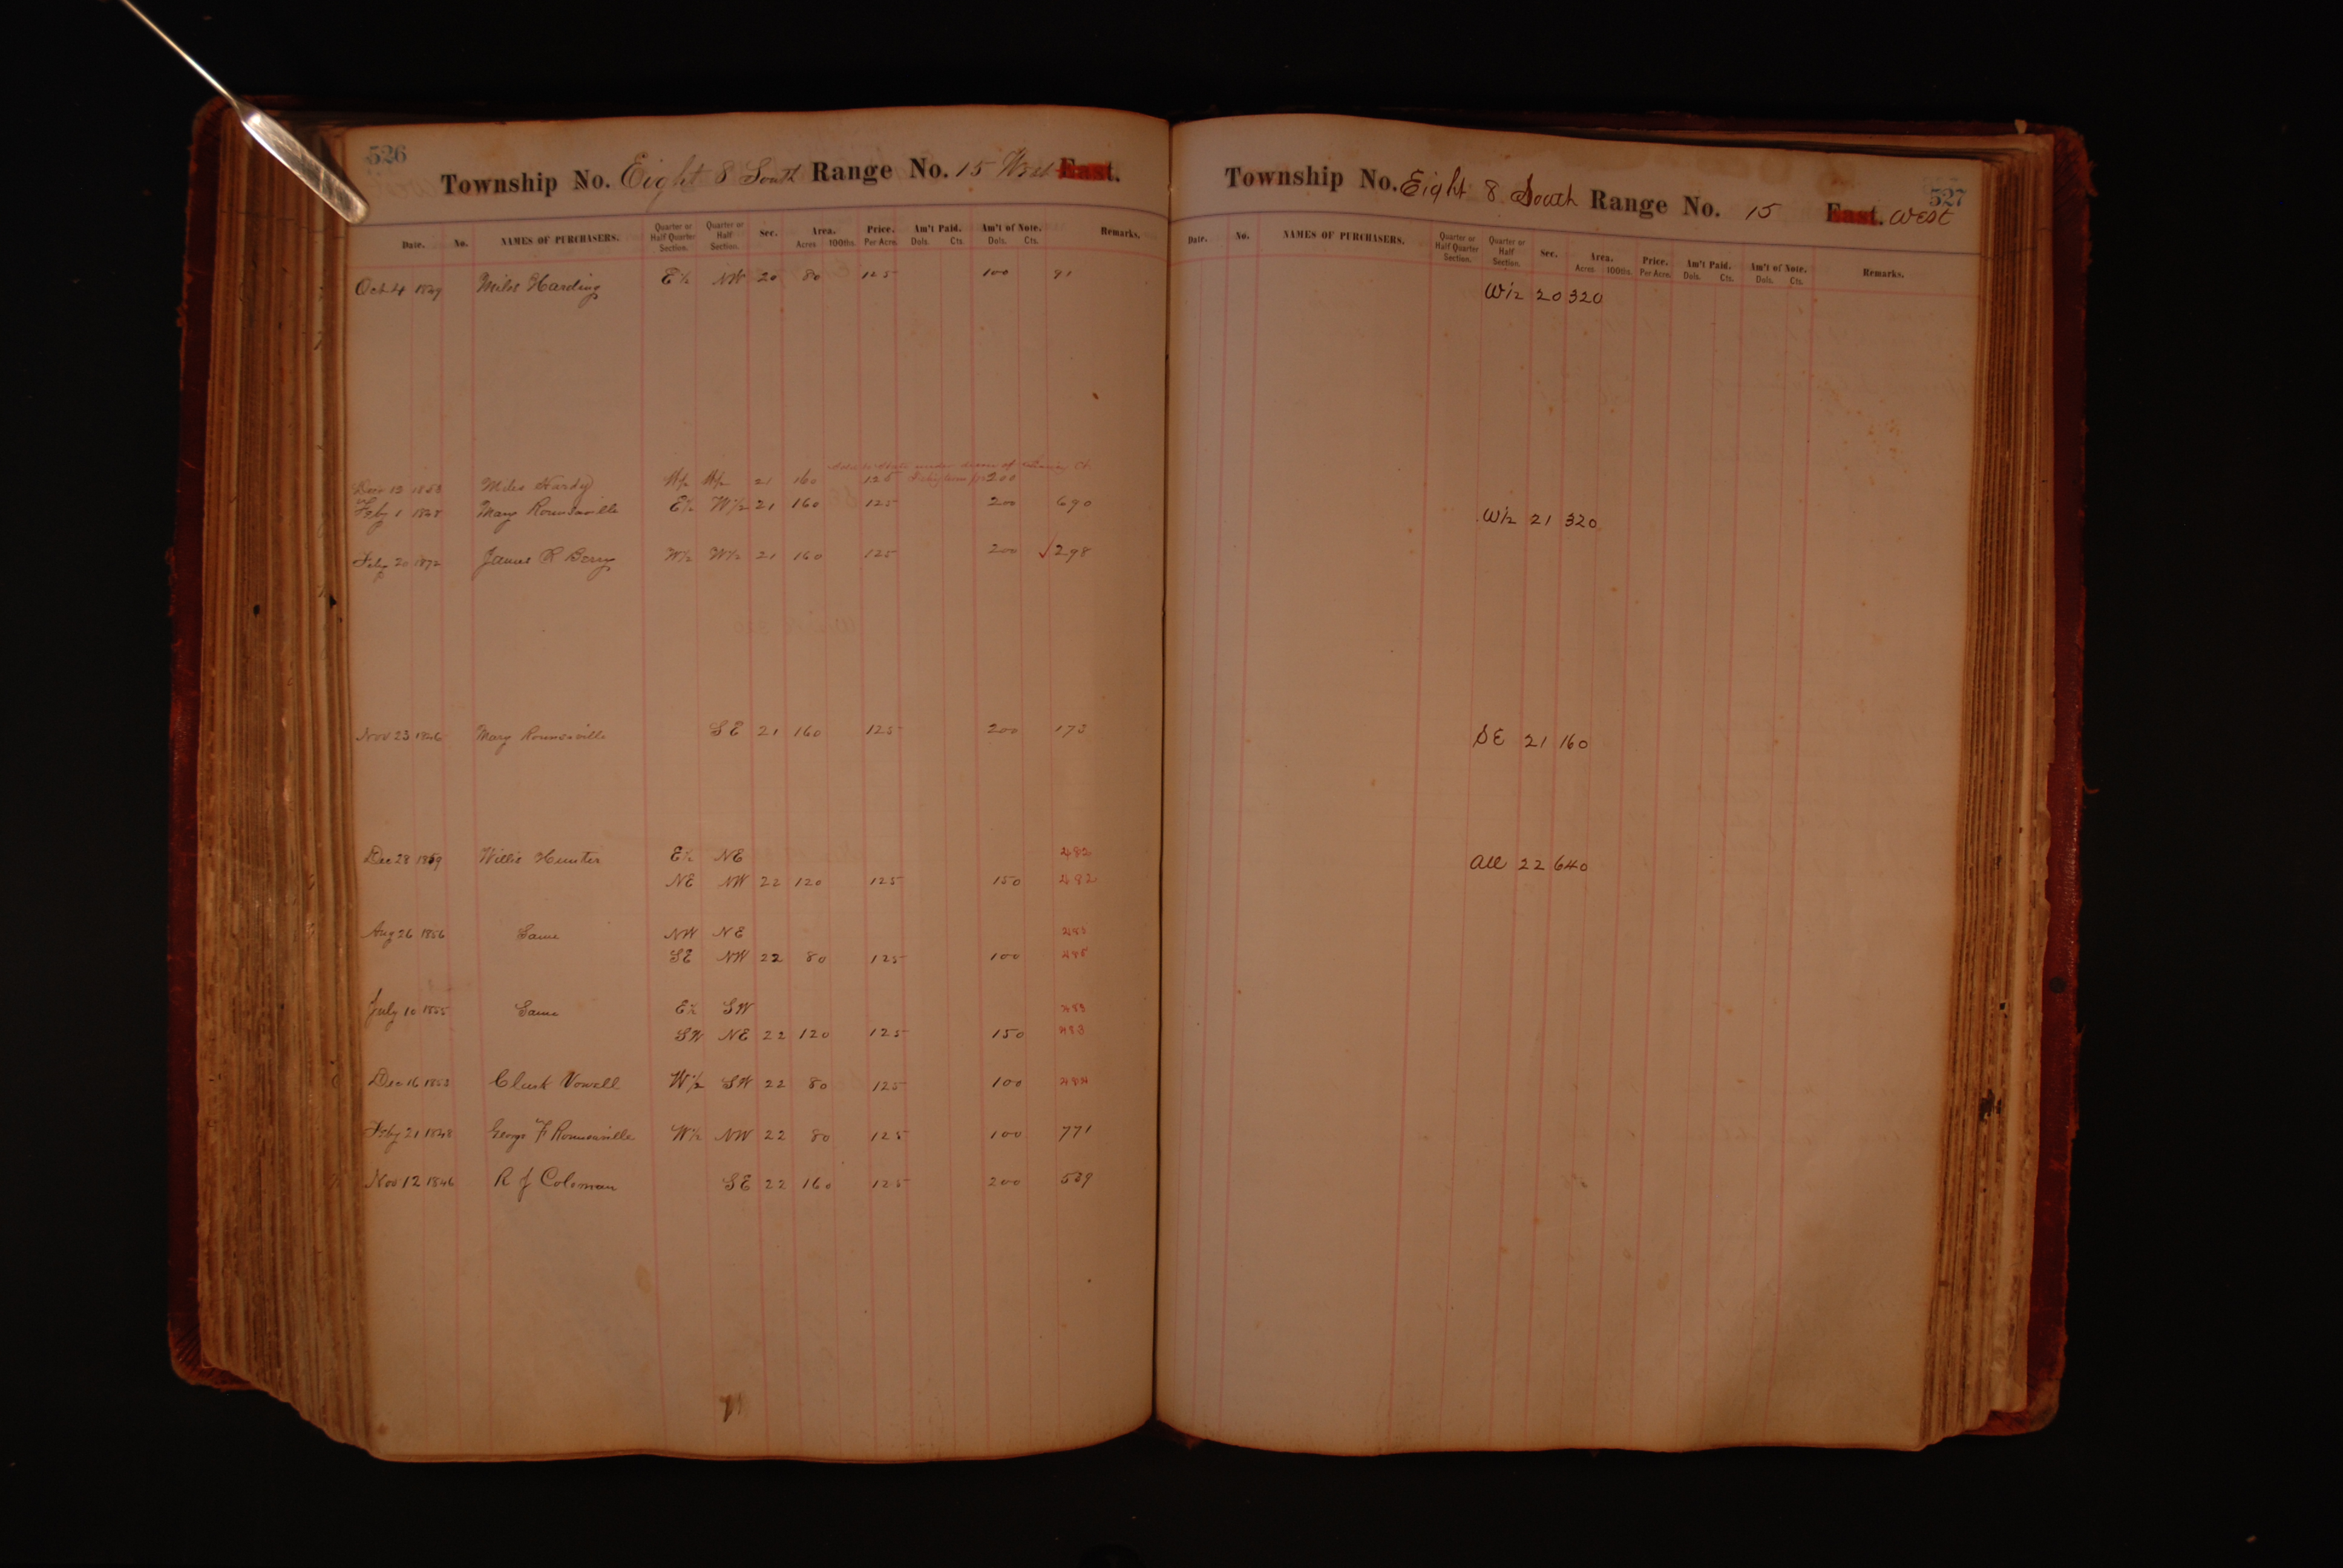 526
Township No. Eight 8 South Range No. 15 West East.
Date. No. NAMES OF PURCHASERS. Quarter or Half Quarter Section. Quarter or Half Section. Sec. Area. Acres 100ths. Price. Per Acre. Am't Paid. Dols. Cts. Am't of Note. Dols. Cts. Remarks.
Oct 4 1849 Miles Harding E½ NW 20 80 125 100 91
Miles Hardy W½ W½ 21 160 125 200
Feby 1 1848 Mary Rounsaville E½ W½ 21 160 125 200 690
Feby 20 1872 James R Berry W½ W½ 21 160 125 200 ✓298
Nov 23 1846 Mary Rounsaville SE 21 160 125 200 173
Dec 28 1859 Willis Hunter E½ NE 482
NE NW 22 120 125 150 482
Aug 26 1856 Same NW NE
SE NW 22 80 125 100 485
July 10 1855 Same E½ SW 483
SW NE 22 120 125 150 483
Dec 16 1853 Clark Vowell W½ SW 22 80 125 100 484
Feby 21 1848 George F Rounsaville W½ NW 22 80 125 100 771
Nov 12 1846 R J Coleman SE 22 160 125 200 539
527
Township No. Eight 8 South Range No. 15 East. West
Date. No. NAMES OF PURCHASERS. Quarter or Half Quarter Section. Quarter or Half Section. Sec. Area. Acres 100ths. Price. Per Acre. Am't Paid. Dols. Cts. Am't of Note. Dols. Cts. Remarks.
W½ 20 320
W½ 21 320
SE 21 160
All 22 640